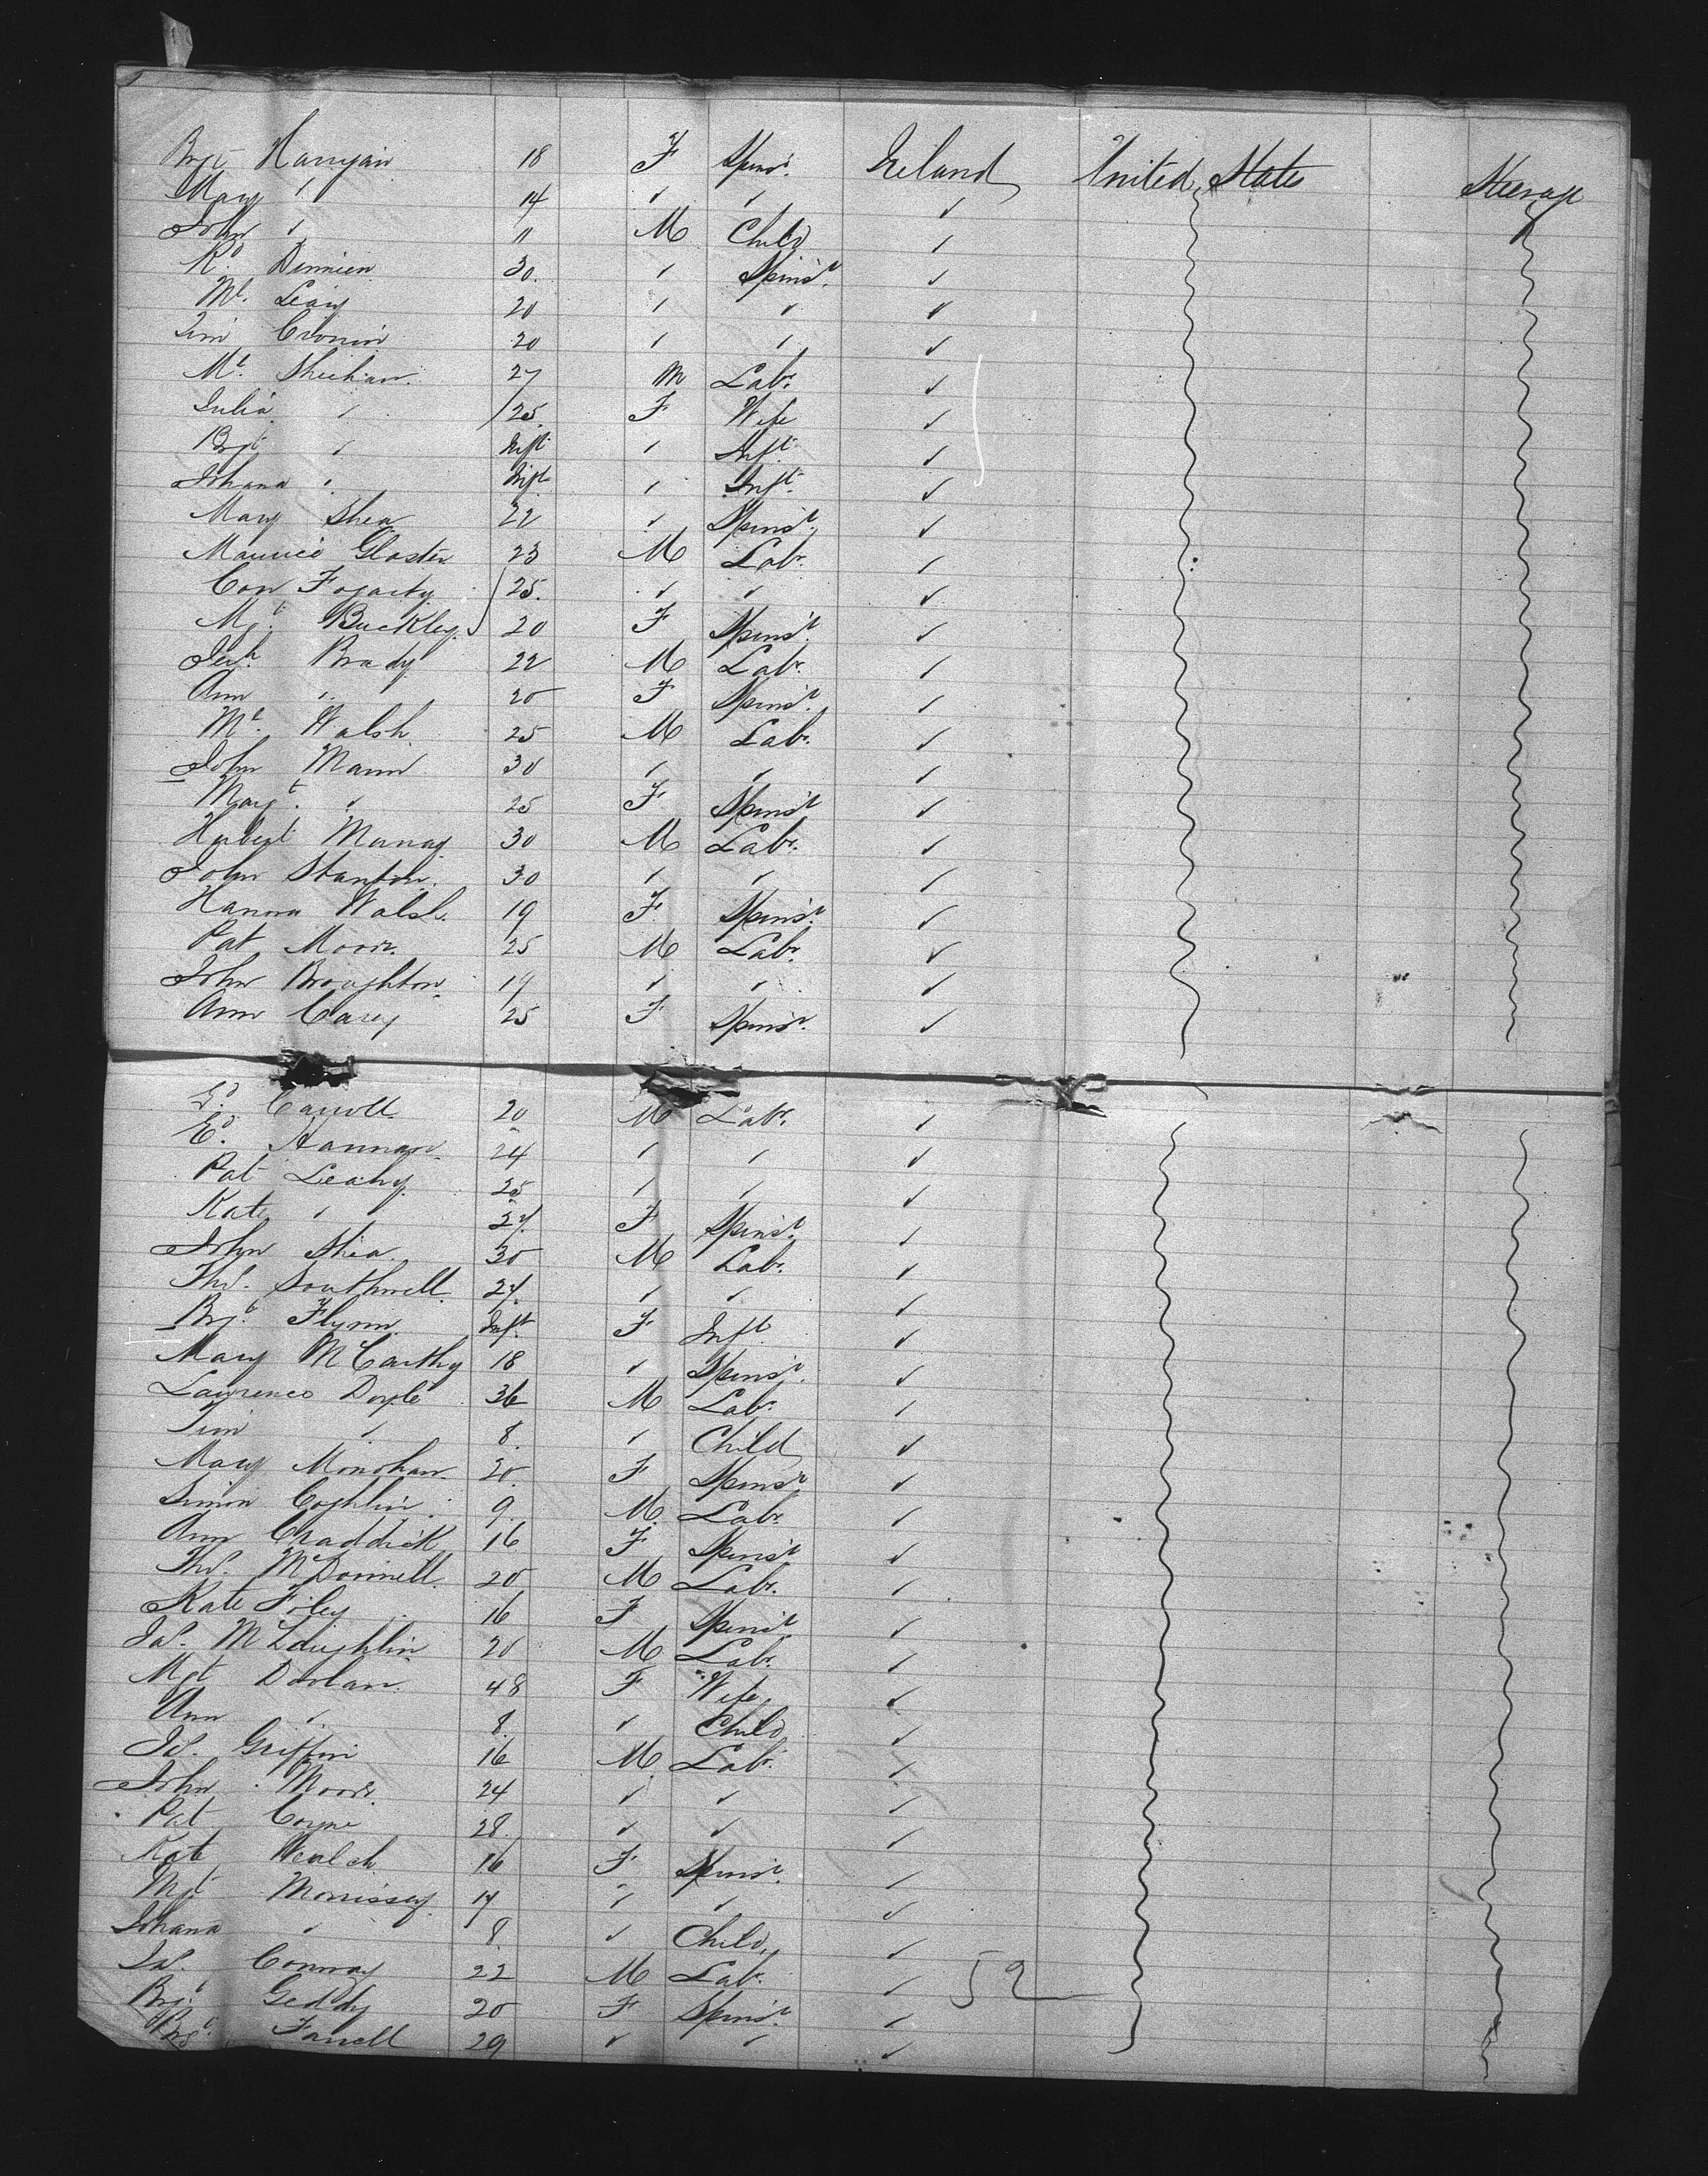 Brgt Harrigan 18 F Spinsr. Ireland United States Steerage
Mary " 14 " " "
John " 11 M Child "
Ro. Dinnien 30. " Spinsr. "
Mt. Leary 20 " " "
Tim Cronin 20 " " "
Mt. Sheehan. 27 M Labr. "
Julia " 25. F Wife "
Brgt " Inft " Inft "
Johana " Inft " Inft. "
Mary Shea 22 " Spinsr. "
Maurice Gloster 23 M Labr. "
Con Fogarty 25. " " "
Mgt. Buckley 20 F Spinsr. "
Jerh Brady 22 M Labr. "
Ann " 20 F Spinsr. "
Mt. Walsh 25 M Labr. "
John Mann 30 " " "
Margt. " 25 F Spinsr "
Herbert Murray 30 M Labr. "
John Stanton. 30 " " "
Hanna Walsh. 19 F Spinsr. "
Pat Moore. 25 M Labr. "
John Broughton 19 " " "
Ann Carey 25 F Spinsr. "
Ed. Carroll 20 M Labr. "
Ed. Hannan 24 " " "
Pat Leahy. 25 " " "
Kate " 27. F Spinsr. "
John Shea. 30 M Labr. "
Thos. Southwell 27. " " "
Brgt. Flynn Inft. F Inft "
Mary McCarthy 18 " Spinsr. "
Lawrence Doyle 36 M Labr. "
Tim " 8. " Child "
Mary Monohan 20. F Spinsr. "
Simon Coghlin 9. M. Labr. "
Ann Craddick 16 F Spinsr "
Thos. McDonnell. 20 M Labr. "
Kate Foley 16 F Spinsr "
Jas. McLoughlin 20 M Labr. "
Mgt Dolan. 48 F Wife "
Ann " 8. " Child "
Jas. Griffin 16 M. Labr. "
John Moore. 24 " " "
Pat Coyne 28. " " "
Kate Walsh 16 F Spinsr. "
Mgt Morrissey 17 " " "
Johana " 8. " Child "
Jas. Conway 22 M Labr. " 52
Brgt. Geddy 20 F Spinsr. "
Farrell 29 " " "